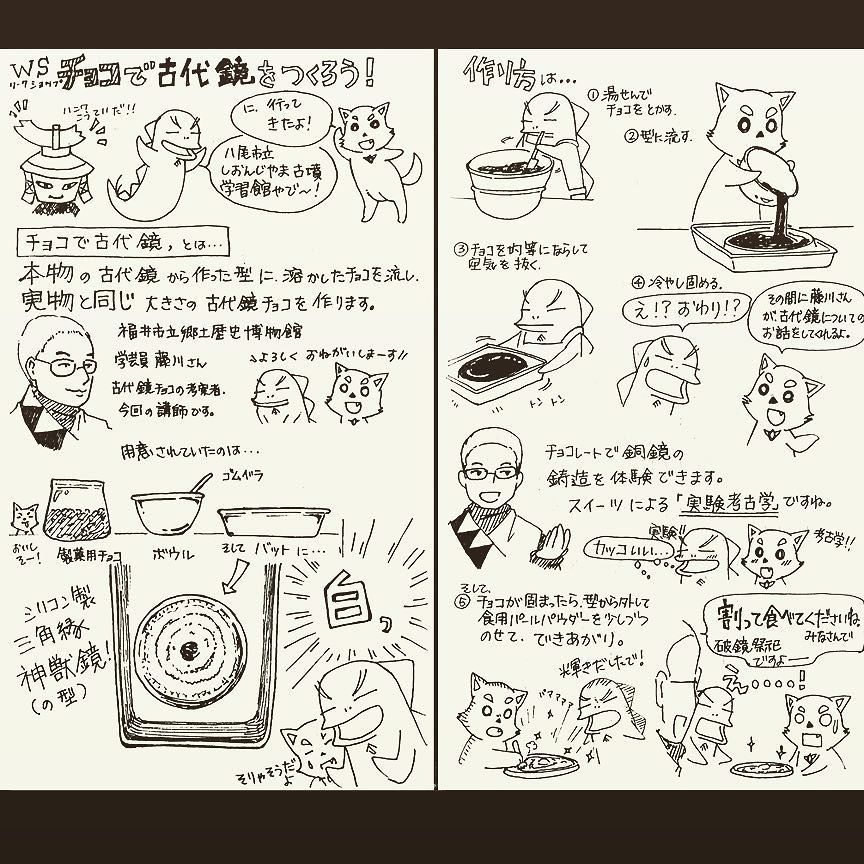 WS
ワークショップ
チョコで古代鏡をつくろう!
に、行って
きたよ!
八尾市立
しおんじやま古墳
学習館やで〜!
チョコで古代鏡,とは…
本物の古代鏡から作った型に、溶かしたチョコを流し、
実物と同じ大きさの古代鏡チョコを作ります。
福井市立郷土歴史博物館
学芸員 藤川さん
古代鏡チョコの考案者、
今回の講師です。
よろしくおねがいしまーす!!
用意されていたのは…
ゴムベラ
おいしそー!
製菓用チョコ
ボウル
そして バットに…
シリコン製
三角縁
神獣鏡!
(の型)
白,
そりゃそうだよ
作り方は…
①湯せんで
チョコをとかす.
②型に流す.
③チョコを均等にならして
空気を抜く.
トントン
④冷やし固める.
え!?おわり!?
その間に藤川さん
が古代鏡についての
お話をしてくれるよ。
チョコレートで銅鏡の
鋳造を体験できます。
スイーツによる「実験考古学」ですね。
実験!!
カッコいい…
考古学!!
そして、
⑤チョコが固まったら、型から外して
食用パールパウダーを少しづつ
のせて、できあがり。
輝きだしたで!
パタパタ
割って食べてくださいね
みなさんで
破鏡祭祀
ですよ
え....!